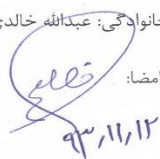 خانوادگی: عبدالله خالدی
امضا:
۹۳,۱۱,۱۲